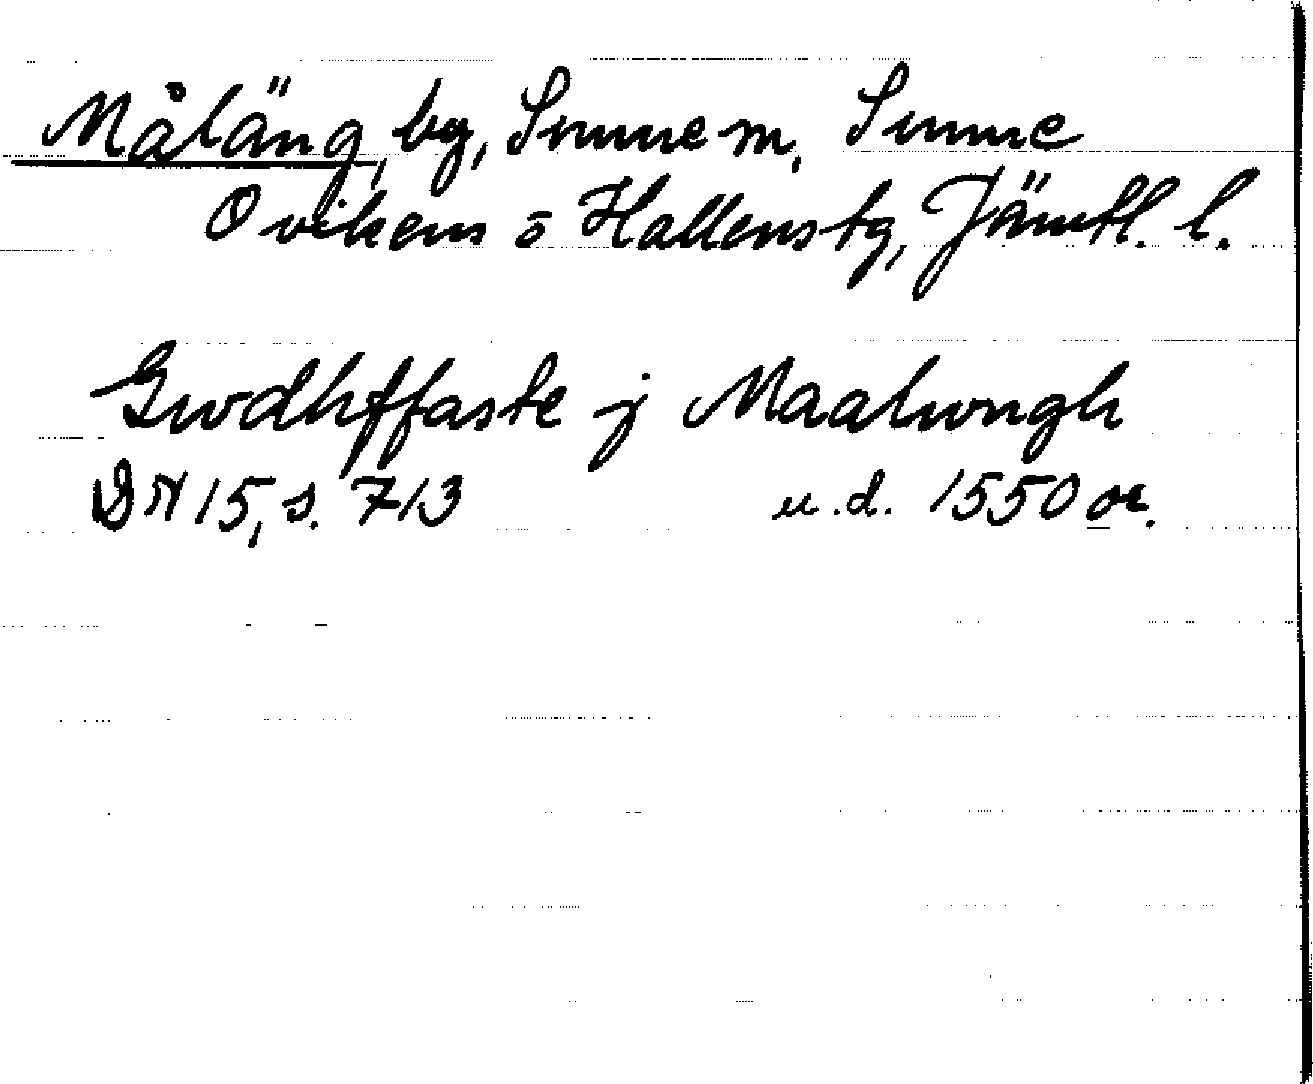 Måläng, by, Sunne sn, Sunne
Ovikens o Hallens tg, Jämtl. l.
Gwdhffaste j Maalwngh
DN 15, s. 713 u.d. 1550 or.